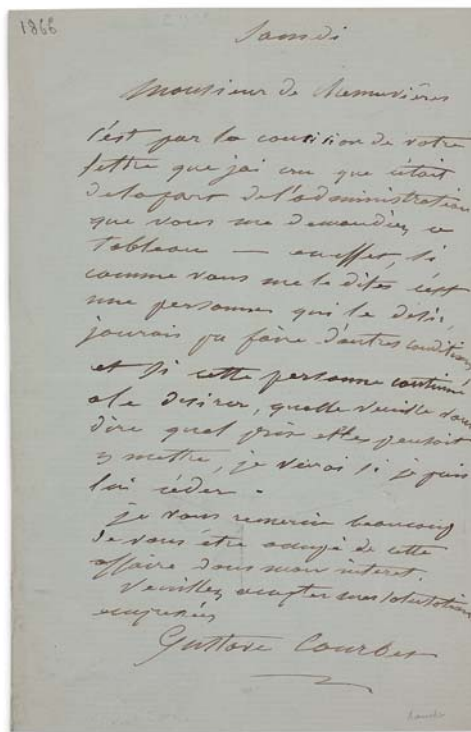 1866
Samedi
Monsieur de
c'est par la concision de votre
lettre que jai cru que c'était
de la part de l'administration
que vous me demandiez ce
tableau — en effet, si
comme vous me le dites c'est
une personne qui le désir,
jaurais pu faire d'autres conditions
et si cette personne continue
a le desirer, quelle veuille vous
dire quel prix elle pensait
y mettre, je verai si je puis
lui céder.
je vous remercie beaucoup
de vous être occupé de cette
affaire dans mon interet.
Veuillez accepter mes salutations
empressées
Gustave Courbet